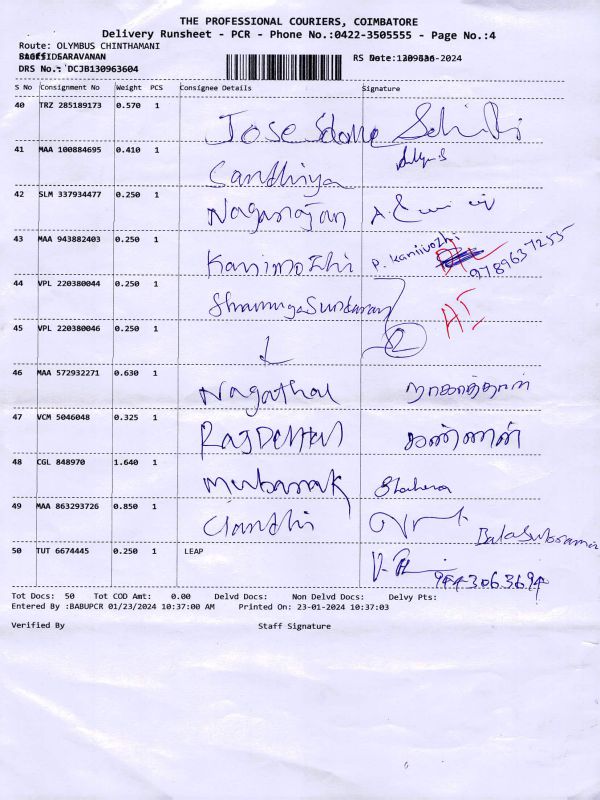 THE PROFESSIONAL COURIERS, COIMBATORE
Delivery Runsheet - PCR - Phone No.:0422-3505555 - Page No.:4
Route: OLYMBUS CHINTHAMANI
SARAVANAN RS -2024
DRS No.: DCJB130963604
S No Consignment No Weight PCS Consignee Details Signature
40 TRZ 285189173 0.570 1 Jose
41 MAA 100884695 0.410 1 Sandhiya
42 SLM 337934477 0.250 1 Nagarajan
43 MAA 943882403 0.250 1 Kanimozhi P. Kanivozhi 9789637255
44 VPL 220380044 0.250 1 ShanmugaSundaram
45 VPL 220380046 0.250 1 2
46 MAA 572932271 0.630 1 Nagathal நாகாத்தாள்
47 VCM 5046048 0.325 1 கண்ணன்
48 CGL 848970 1.640 1 Mubarrak
49 MAA 863293726 0.850 1 Gandhi
50 TUT 6674445 0.250 1 LEAP 9443063694
Tot Docs: 50 Tot COD Amt: 0.00 Delvd Docs: Non Delvd Docs: Delvy Pts:
Entered By :BABUPCR 01/23/2024 10:37:00 AM Printed On: 23-01-2024 10:37:03
Verified By Staff Signature